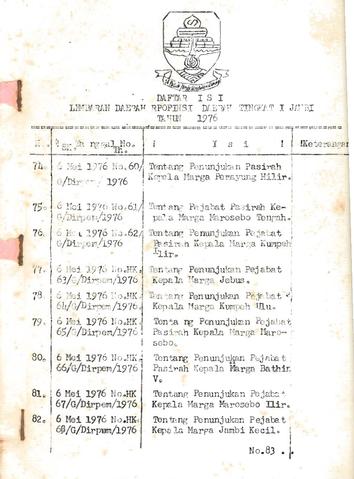 DAFTAR I S I
LEMBARAN DAERAH RPOPINSI DAERAH TINGKAT I JAMBI
TAHUN 1976
I s i !Keterangan
74. 6 Mei 1976 No.60/ Tentang Penunjukan Pasirah
G/Dirpem/ 1976 Kepala Marga Perayung Hilir.
75. 6 Mei 1976 No.61/ Tentang Pejabat Pasirah Ke-
G/Dirpem/1976 pala Marga Marosebo Tengah.
76. 6 Mei 1976 No.62/ Tentang Penunjukan Pejabat
G/Dirpem/1976 Pasirah Kepala Marga Kumpeh
Ilir.
77. 6 Mei 1976 No.HK Tentang Penunjukan Pejabat
63/G/Dirpem/1976 Kepala Marga Jebus.
78 6 Mei 1976 No.HK Tentang Penunjukan Pejabat
64/G/Dirpem/1976 Kepala Marga Kumpeh Ulu.
79. 6 Mei 1976 No.HK Tenta ng Penunjukan Pejabat
65/G/Dirpem/1976 Pasirah Kepala Marga Maro-
sebo.
80. 6 Mei 1976 No.HK Tentang Penunjukan Pejabat
66/G/Dirpem/1976 Pasirah Kepala Marga Bathin
V.
81. 6 Mei 1976 No.HK Tentang Penunjukan Pejabat
67/G/Dirpem/1976 Kepala Marga Marosebo Ilir.
82. 6 Mei 1976 No.HK Tentang Penunjukan Pejabat
68/G/Dirpem/1976 Kepala Marga Jambi Kecil.
No.83 . .